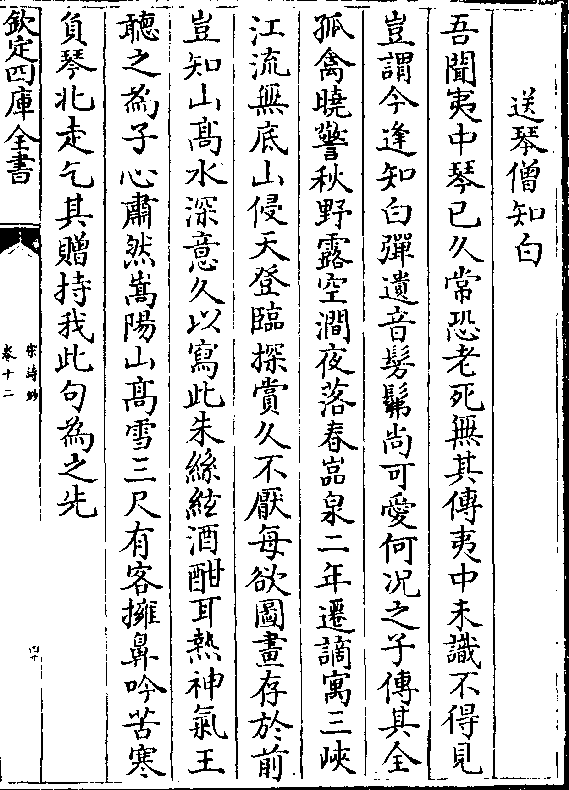 送琴僧知白
吾聞夷中琴已久常恐老死無其傳夷中未識不得見
豈謂今逢知白彈遺音髣髴尚可愛何况之子傳其全
孤禽曉警秋野露空澗夜落春嵓泉二年遷謫寓三峽
江流無底山侵天登臨探賞久不厭每欲圖畫存於前
豈知山髙水深意久以寫此朱絲絃酒酣耳熱神氣王
聽之為子心肅然嵩陽山髙雪三尺有客擁鼻吟苦寒
負琴北走乞其贈持我此句為之先
欽定四庫全書
宋詩鈔
卷十二